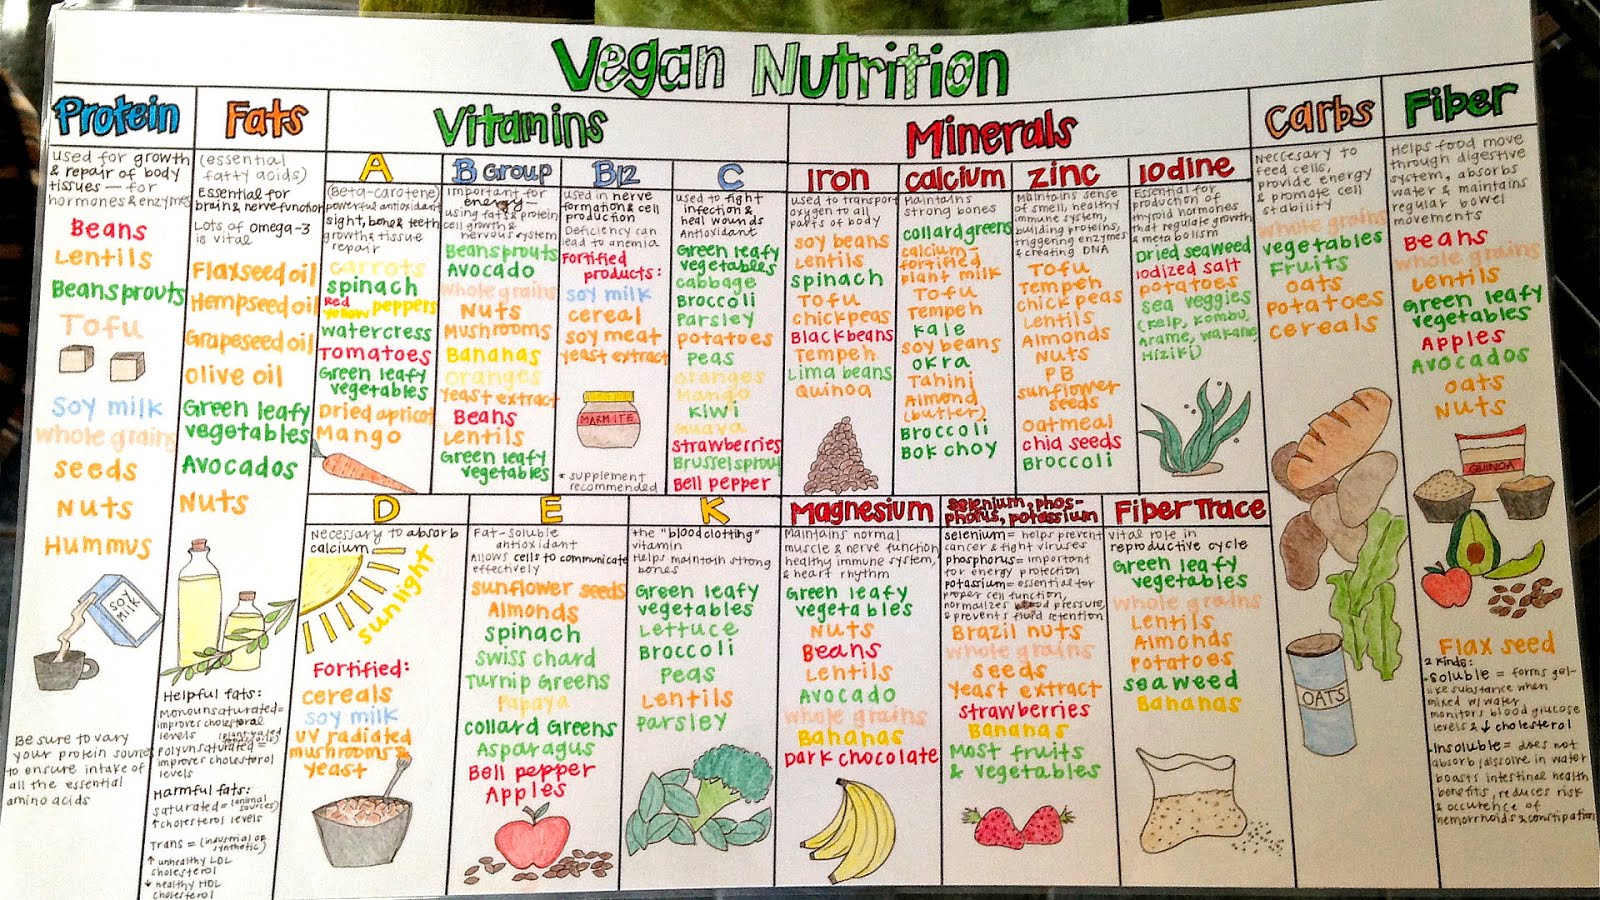 Vegan Nutrition
Protein
used for growth
& repair of body
tissues — for
hormones & enzymes
Beans
Lentils
Beansprouts
Tofu
Soy milk
whole grains
seeds
Nuts
Hummus
SOY
MILK
Be sure to vary
your protein sources
to ensure intake of
all the essential
amino acids
Fats
(essential
fatty acids)
Essential for
brain & nerve function
Lots of omega-3
is vital
Flaxseed oil
Hempseed oil
Grapeseed oil
olive oil
Green leafy
vegetables
Avocados
Nuts
Helpful fats:
Monounsaturated=
improves cholesterol
levels
Polyunsaturated=
improves cholesterol
levels
Harmful fats:
saturated= (animal
sources)
↑cholesterol levels
Trans = (industrial or
synthetic)
↑ unhealthy LDL
cholesterol
↓ healthy HDL
cholesterol
Vitamins
A
(Beta-carotene)
powerful antioxidant
sight, bone & teeth
growth & tissue
repair
carrots
spinach
Red
yellow peppers
watercress
Tomatoes
Green leafy
vegetables
Dried apricot
Mango
B Group
Important for
energy
using fats & protein
cell growth &
nervous system
Beansprouts
Avocado
whole grains
Nuts
Mushrooms
Bananas
oranges
Yeast extract
Beans
Lentils
Green leafy
vegetables
B12
used in nerve
formation & cell
production
Deficiency can
lead to anemia
Fortified
products:
soy milk
cereal
soy meat
yeast extract
MARMITE
* supplement
recommended
C
used to fight
infection &
heal wounds
Antioxidant
Green leafy
vegetables
cabbage
Broccoli
Parsley
potatoes
Peas
oranges
Mango
Kiwi
Guava
strawberries
Brussel sprout
Bell pepper
D
Necessary to absorb
calcium
sunlight
Fortified:
cereals
soy milk
UV radiated
mushrooms &
yeast
E
Fat-soluble
antioxidant
Allows cells to communicate
effectively
sunflower seeds
Almonds
spinach
swiss chard
Turnip Greens
Papaya
collard Greens
Asparagus
Bell pepper
Apples
K
the "bloodclotting"
vitamin
Helps maintain strong
bones
Green leafy
vegetables
Lettuce
Broccoli
Peas
Lentils
parsley
Minerals
Iron
used to transport
oxygen to all
parts of body
soy beans
Lentils
spinach
Tofu
chickpeas
Black beans
Tempeh
Lima beans
Quinoa
calcium
Maintains
strong bones
collard greens
calcium-
fortified
plant milk
Tofu
Tempeh
kale
soy beans
okra
Tahini
Almond
(butter)
Broccoli
Bok choy
zinc
Maintains sense
of smell, healthy
immune system,
building proteins,
triggering enzymes
& creating DNA
Tofu
Tempeh
chick peas
Lentils
Almonds
Nuts
PB
sunflower
seeds
oatmeal
chia seeds
Broccoli
Iodine
Essential for
production of
thyroid hormones
that regulate growth
& metabolism
Dried seaweed
Iodized salt
potatoes
sea veggies
(kelp, Kombu,
Arame, wakame,
Hiziki)
Magnesium
Maintains normal
muscle & nerve function,
healthy immune system,
& heart rhythm
Green leafy
vegetables
Nuts
Beans
Lentils
Avocado
whole grains
Bananas
Dark chocolate
selenium, phos-
phorus, potassium
selenium= helps prevent
cancer & fight viruses
phosphorus= important
for energy protection
potassium= essential for
proper cell function,
normalizes blood pressure,
& prevents fluid retention
Brazil nuts
whole grains
seeds
Yeast extract
strawberries
Bananas
Most fruits
& vegetables
Fiber Trace
vital role in
reproductive cycle
Green leafy
vegetables
whole grains
Lentils
Almonds
potatoes
seaweed
Bananas
Carbs
Neccesary to
feed cells,
provide energy
& promote cell
stability
whole grains
vegetables
Fruits
oats
potatoes
cereals
OATS
Fiber
Helps food move
through digestive
system, absorbs
water & maintains
regular bowel
movements
Beans
whole grains
Lentils
Green leafy
vegetables
Apples
Avocados
oats
Nuts
QUINOA
Flax seed
2 kinds:
-soluble = forms gel-
like substance when
mixed w/ water
monitors blood glucose
levels & ↓ cholesterol
-Insoluble = does not
absorb/dissolve in water
boosts intestinal health
benefits, reduces risk
& occurence of
hemorrhoids & constipation